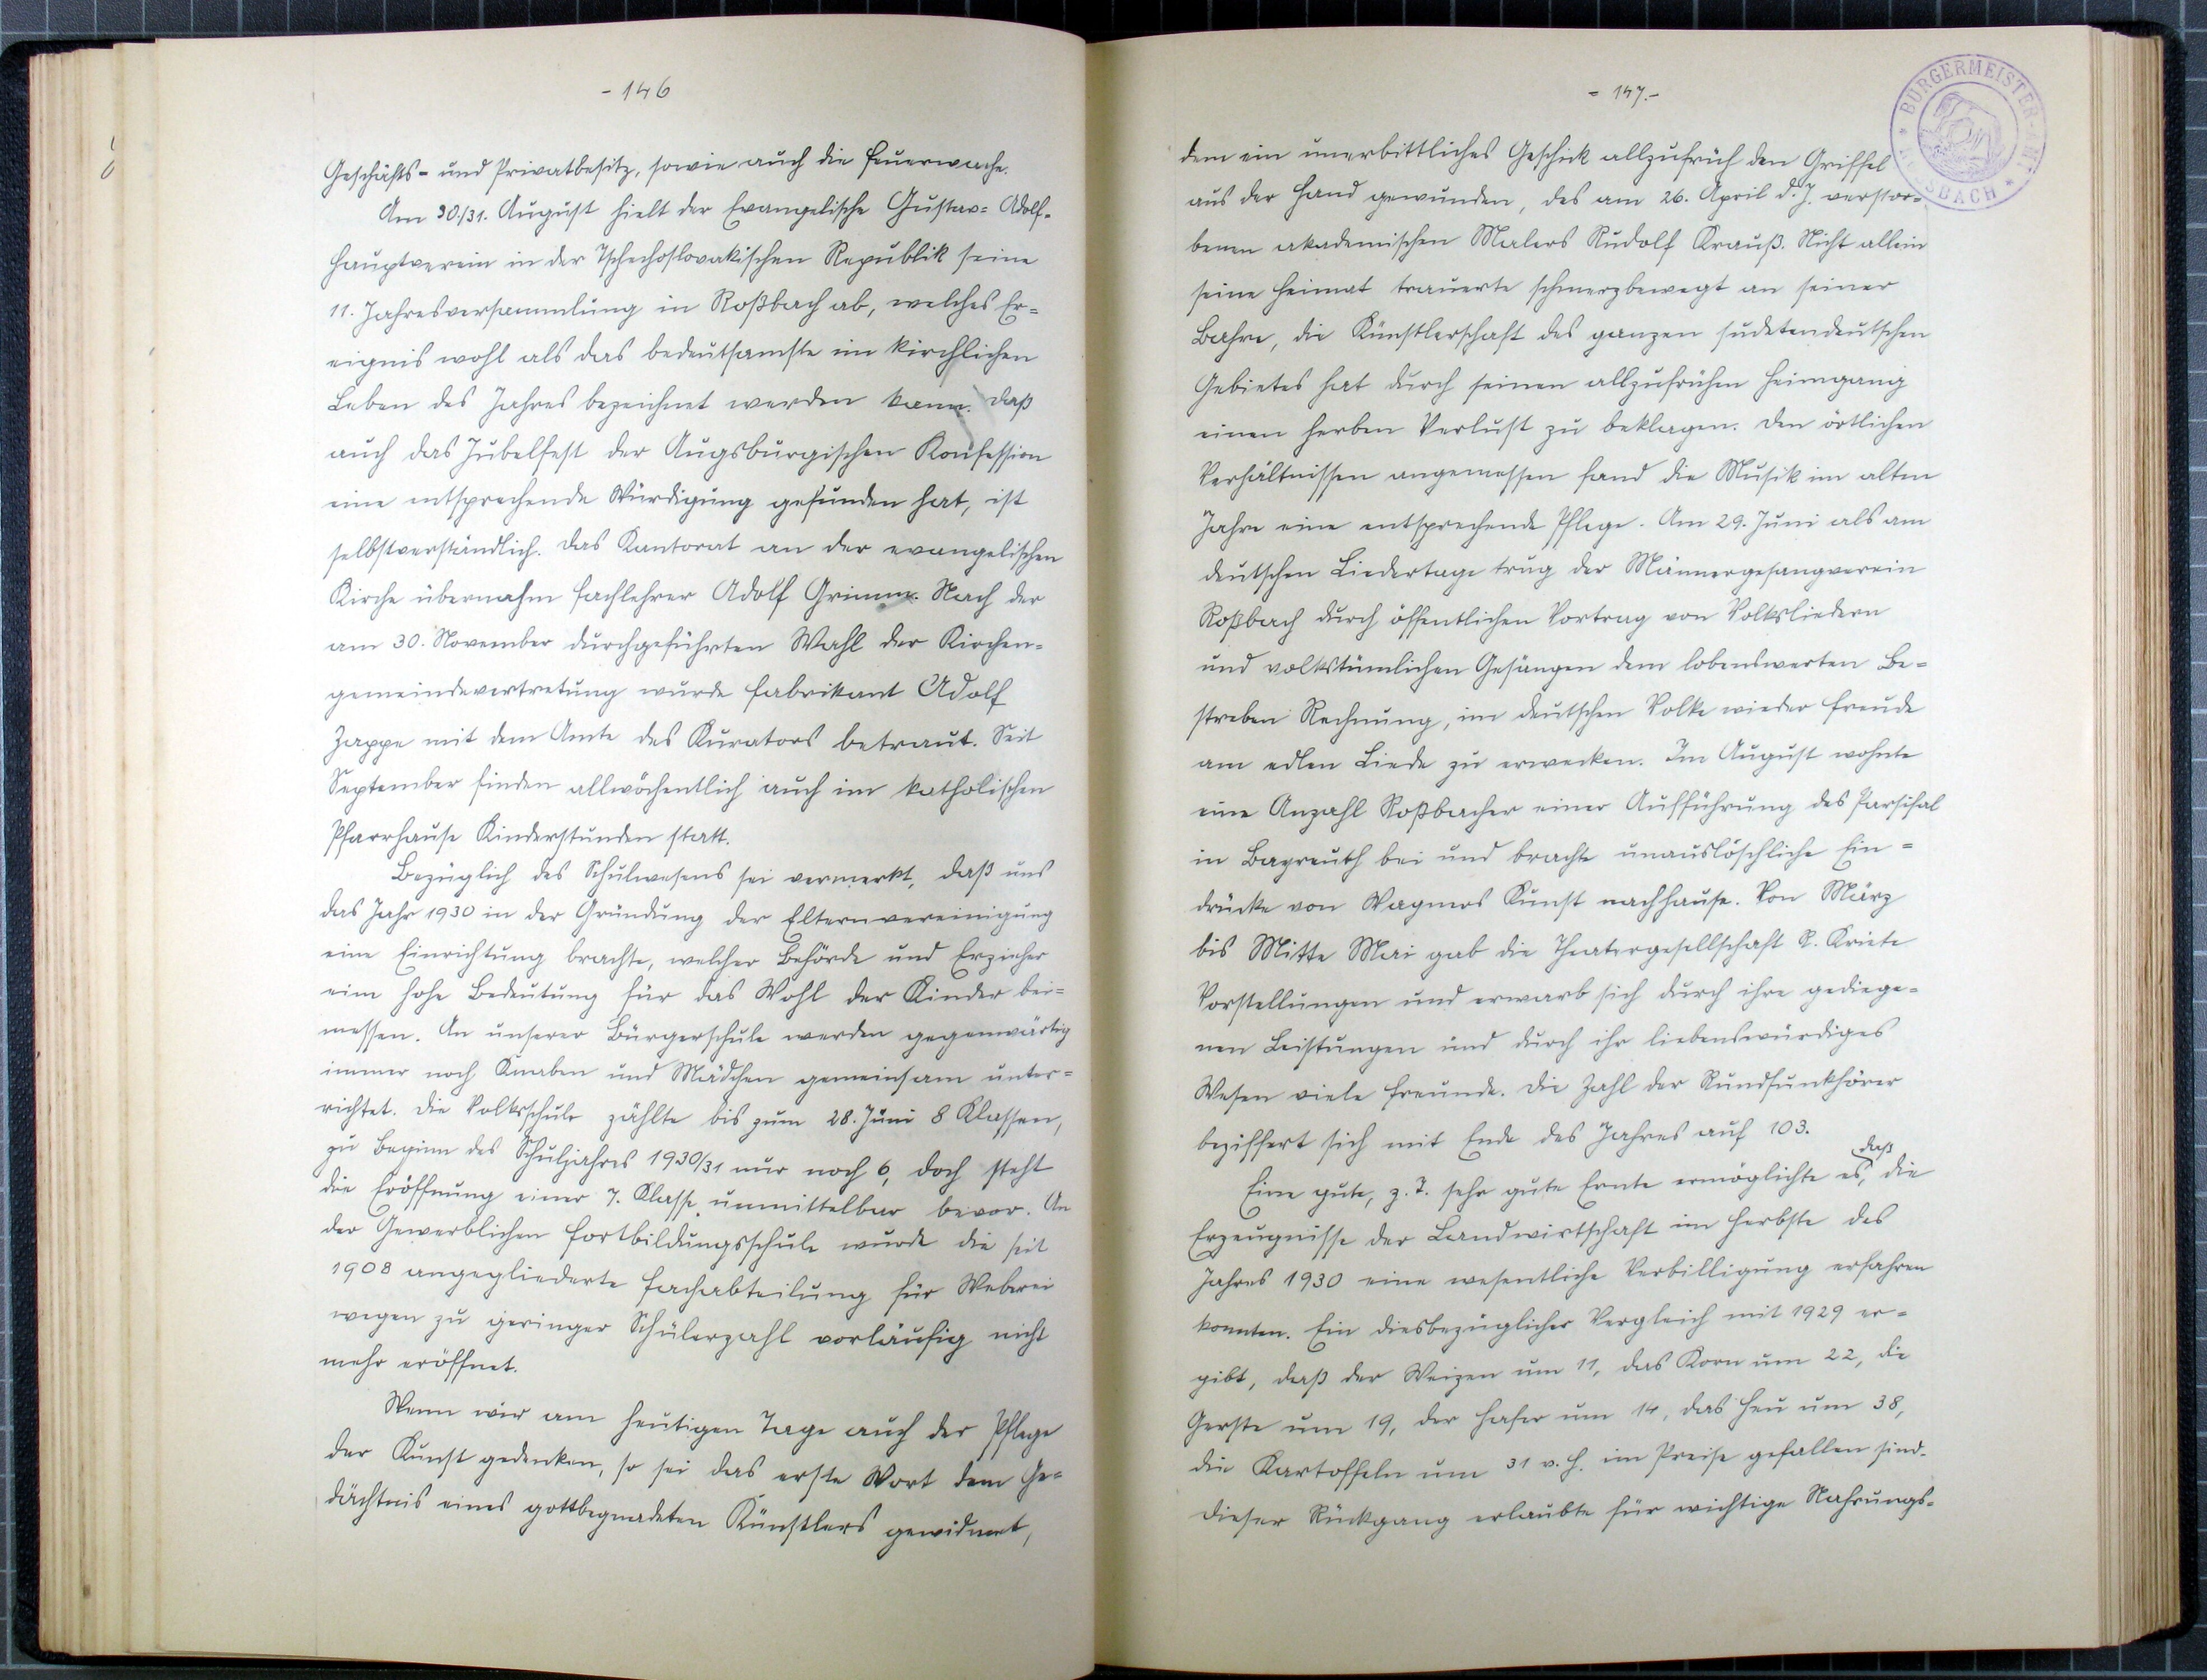 - 146
Geschäfts- und Privatbesitz, sowie auch die Feuerwache.
Am 30./31. August hielt der Evangelische Gustav= Adolf-
Hauptverein in der Tschechoslovakischen Republik seine
11. Jahresversammlung in Roßbach ab, welches Er=
eignis wohl als das bedeutsamste im kirchlichen
Leben des Jahres bezeichnet werden kann. Daß
auch das Jubelfest der Augsburgischen Konfession
eine entsprechende Würdigung gefunden hat, ist
selbstverständlich. Das Kantorat an der evangelischen
Kirche übernahm Fachlehrer Adolf Grimm. Nach der
am 30. November durchgeführten Wahl der Kirchen=
gemeindevertretung wurde Fabrikant Adolf
Zappe mit dem Amte des Kurators betraut. Seit
September finden allwöchentlich auch im katholischen
Pfarrhause Kinderstunden statt.
Bezüglich des Schulwesens sei vermerkt, daß uns
das Jahr 1930 in der Gründung der Elternvereinigung
eine Einrichtung brachte, welcher Behörde und Erzieher
eine hohe Bedeutung für das Wohl der Kinder bei=
messen. An unserer Bürgerschule werden gegenwärtig
immer noch Knaben und Mädchen gemeinsam unter=
richtet. Die Volksschule zählte bis zum 28. Juni 8 Klassen,
zu Beginn des Schuljahres 1930/31 nur noch 6, doch steht
die Eröffnung einer 7. Klasse unmittelbar bevor. An
der Gewerblichen Fortbildungsschule wurde die seit
1908 angegliederte Fachabteilung für Weberei
wegen zu geringer Schülerzahl vorläufig nicht
mehr eröffnet.
Wenn wir am heutigen Tage auch der Pflege
der Kunst gedenken, so sei das erste Wort dem Ge=
dächtnis eines gottbegnadeten Künstlers gewidmet,
= 147.-
BÜRGERMEISTER-AMT
* ROSSBACH *
dem ein unerbittliches Geschick allzufrüh den Griffel
aus der Hand gewunden, des am 26. April d. J. verstor=
benen akademischen Malers Rudolf Krauß. Nicht allein
seine Heimat trauerte schmerzbewegt an seiner
Bahre, die Künstlerschaft des ganzen sudetendeutschen
Gebietes hat durch seinen allzufrühen Heimgang
einen herben Verlust zu beklagen. Den örtlichen
Verhältnissen angemessen fand die Musik im alten
Jahre eine entsprechende Pflege. Am 29. Juni als am
deutschen Liedertage trug der Männergesangverein
Roßbach durch öffentlichen Vortrag von Volksliedern
und volkstümlichen Gesängen dem lobenswerten Be=
streben Rechnung, im deutschen Volke wieder Freude
am edlen Liede zu erwecken. Im August wohnte
eine Anzahl Roßbacher einer Aufführung des Parsifal
in Bayreuth bei und brachte unauslöschliche Ein=
drücke von Wagners Kunst nachhause. Von März
bis Mitte Mai gab die Theatergesellschaft R. Kriete
Vorstellungen und erwarb sich durch ihre gediege=
nen Leistungen und durch ihr liebenswürdiges
Wesen viele Freunde. Die Zahl der Rundfunkhörer
beziffert sich mit Ende des Jahres auf 103.
Eine gute, z. T. sehr gute Ernte ermöglichte es, daß die
Erzeugnisse der Landwirtschaft im Herbste des
Jahres 1930 eine wesentliche Verbilligung erfahren
konnten. Ein diesbezüglicher Vergleich mit 1929 er=
gibt, daß der Weizen um 11, das Korn um 22, die
Gerste um 19, der Hafer um 14, das Heu um 38,
die Kartoffeln um 31 v. H. im Preise gefallen sind.
Dieser Rückgang erlaubte für wichtige Nahrungs=